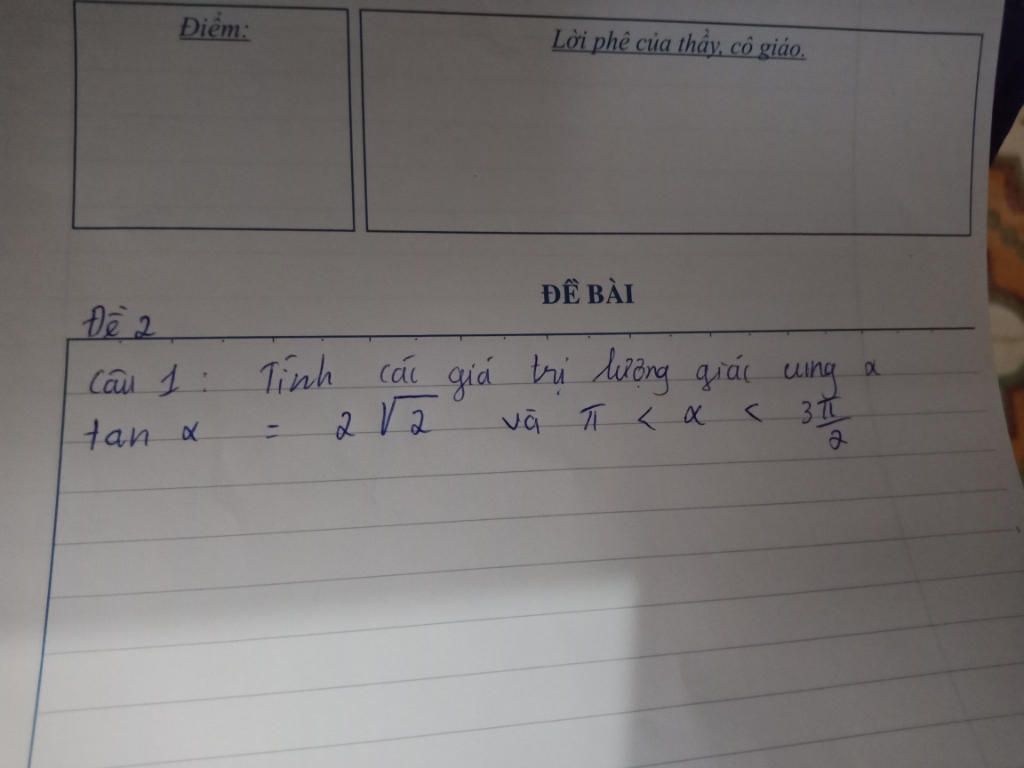 Điểm:
Lời phê của thầy, cô giáo.
ĐỀ BÀI
Đề 2
Câu 1 : Tính các giá trị lượng giác cung α
tan α = 2 √2 và π < α < 3π/2